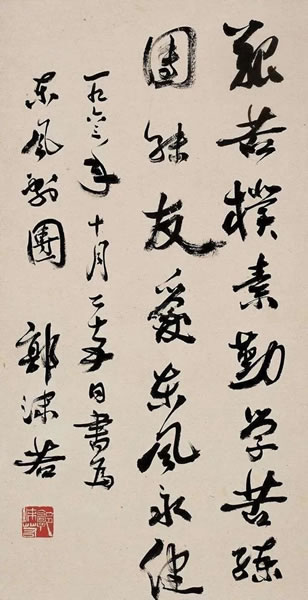 艱苦樸素勤学苦練
團結友愛东风永健
一九六三年十月二十日書為
东风劇團
郭沫若
郭沫若